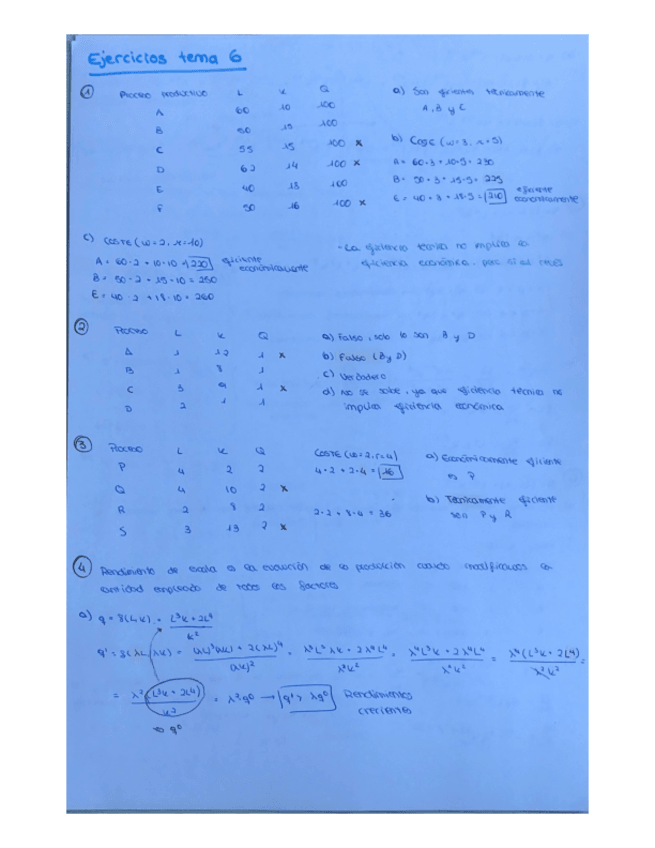 Ejercicios tema 6
① Proceso productivo L K Q
A 60 10 100
B 50 15 100
C 55 15 100 x
D 62 14 100 x
E 40 18 100
F 50 16 100 x
a) Son eficientes técnicamente
A, B y C
b) Coste (w=3, r=5)
A = 60·3 + 10·5 = 230
B = 50·3 + 15·5 = 225
E = 40·3 + 18·5 = 210 eficiente económicamente
c) Coste (w=2, r=10)
A = 60·2 + 10·10 = 220 eficiente económicamente
B = 50·2 + 15·10 = 250
E = 40·2 + 18·10 = 260
- La eficiencia técnica no implica la
eficiencia económica, pero sí al revés
② Proceso L K Q
A 1 12 1 x
B 1 8 1
C 3 9 1 x
D 2 1 1
a) Falso, solo lo son B y D
b) Falso (B y D)
c) Verdadero
d) No se sabe, ya que eficiencia técnica no
implica eficiencia económica
③ Proceso L K Q
P 4 2 2
Q 4 10 2 x
R 2 8 2
S 3 13 2 x
Coste (w=2, r=4)
4·2 + 2·4 = 16
2·2 + 8·4 = 36
a) Económicamente eficiente
es P
b) Técnicamente eficiente
son P y R
④ Rendimiento de escala es la evolución de la producción cuando modificamos la
cantidad empleada de todos los factores
a) q = f(L,K) = L³K + 2L⁴ / K²
q' = f(λL, λK) = (λL)³(λK) + 2(λL)⁴ / (λK)² = λ³L³λK + 2λ⁴L⁴ / λ²K² = λ⁴L³K + 2λ⁴L⁴ / λ²K² = λ⁴(L³K + 2L⁴) / λ²K² =
= λ²(L³K + 2L⁴) / K² = λ²q⁰ → q' > λq⁰ Rendimientos
crecientes
→ q⁰